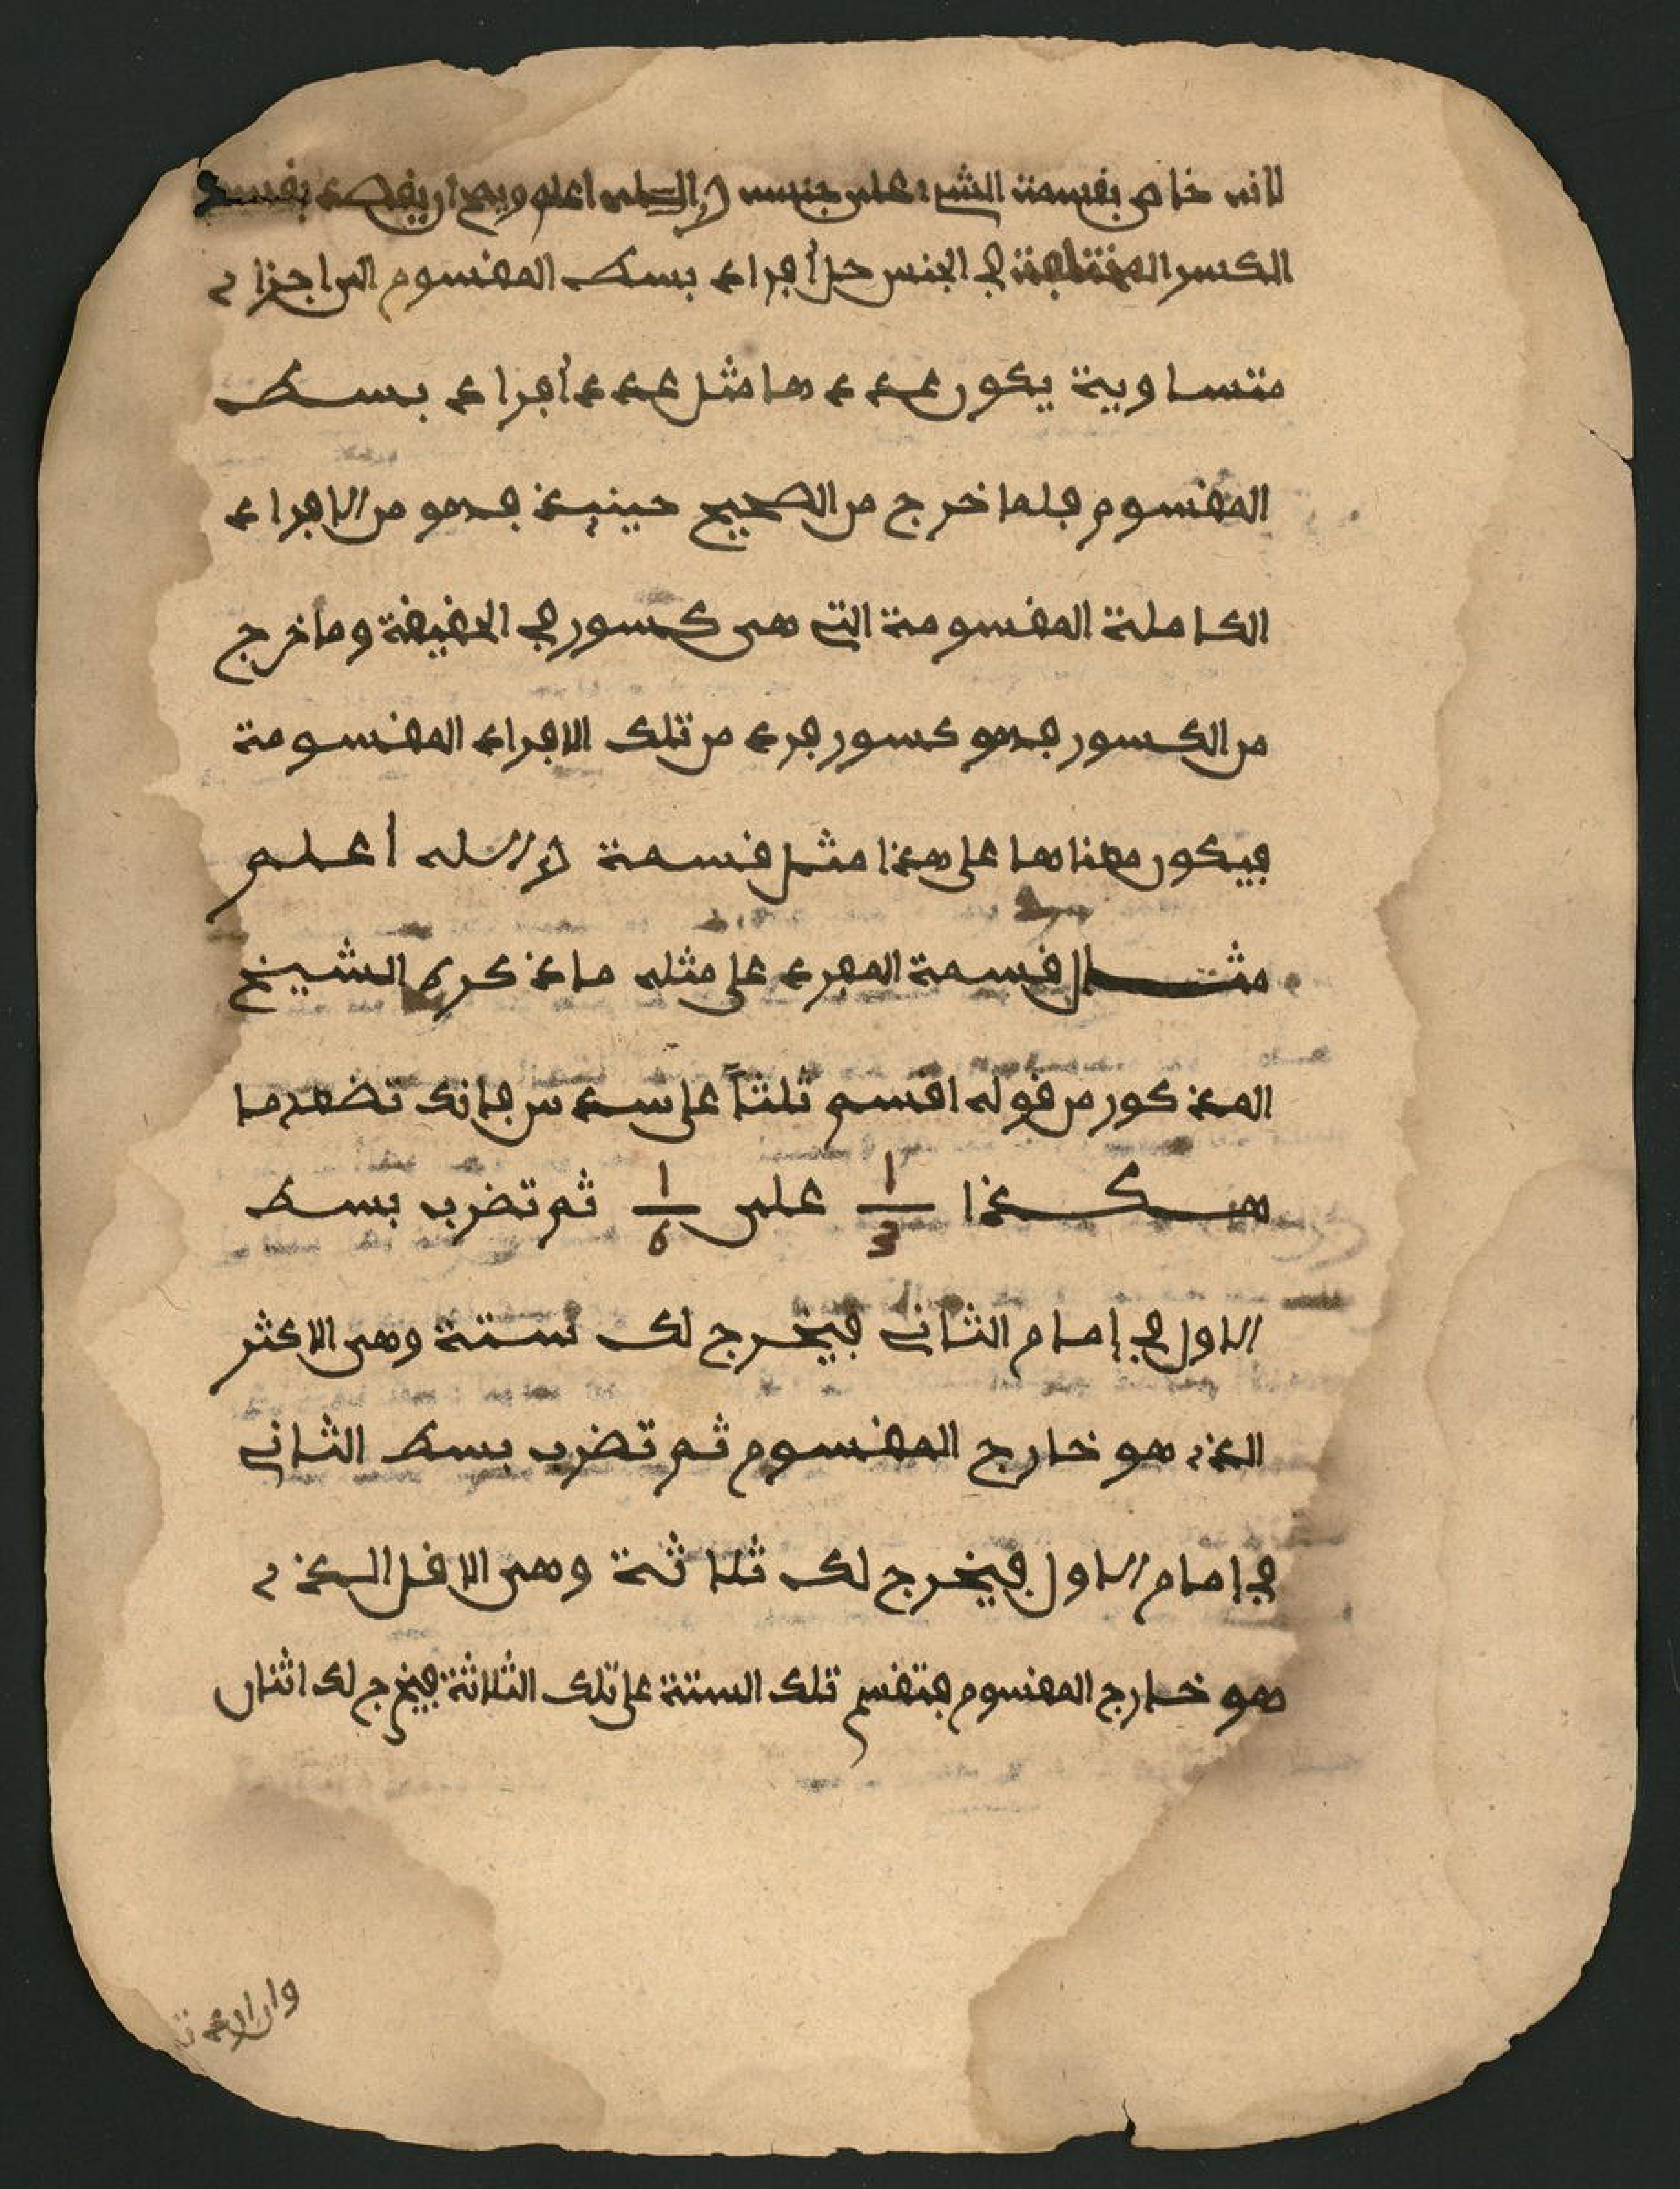 لانه خاص بقسمة الشيء على جنسه والله اعلم ويصح ان يقصد بقسمة
الكسر المختلفة في الجنس حل أفراد بسط المقسوم الى اجزاء
متساوية يكون عدد ها مثل عدد أفراد بسط
المقسوم فلما خرج من الصحيح حينئذ فهو من الافراد
الكاملة المقسومة التي هي كسور في الحقيقة وما خرج
من الكسور فهو كسور فرد من تلك الافراد المقسومة
فيكون معناها على هذا مثل قسمة والله أعلم
مثال قسمة المفرد على مثله ما ذكره الشيخ
المذكور من قوله اقسم ثلثاً على سدس فانك تضعهما
هكذا 1/3 على 1/6 ثم تضرب بسط
الاول في إمام الثاني فيخرج لك ستة وهي الاكثر
الذي هو خارج المقسوم ثم تضرب بسط الثاني
في إمام الاول فيخرج لك ثلاثة وهي الاقل الذي
هو خارج المقسوم فتقسم تلك الستة على تلك الثلاثة فيخرج لك اثنان
وان اردت